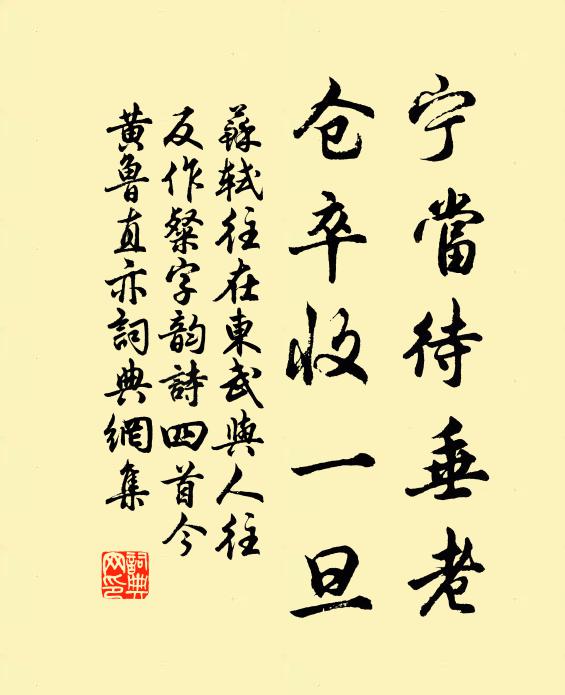 宁當待垂老
仓卒收一旦
蘇軾往在東武與人往
反作粲字韵詩四首今
黃魯直亦詞典網集
詞典网印